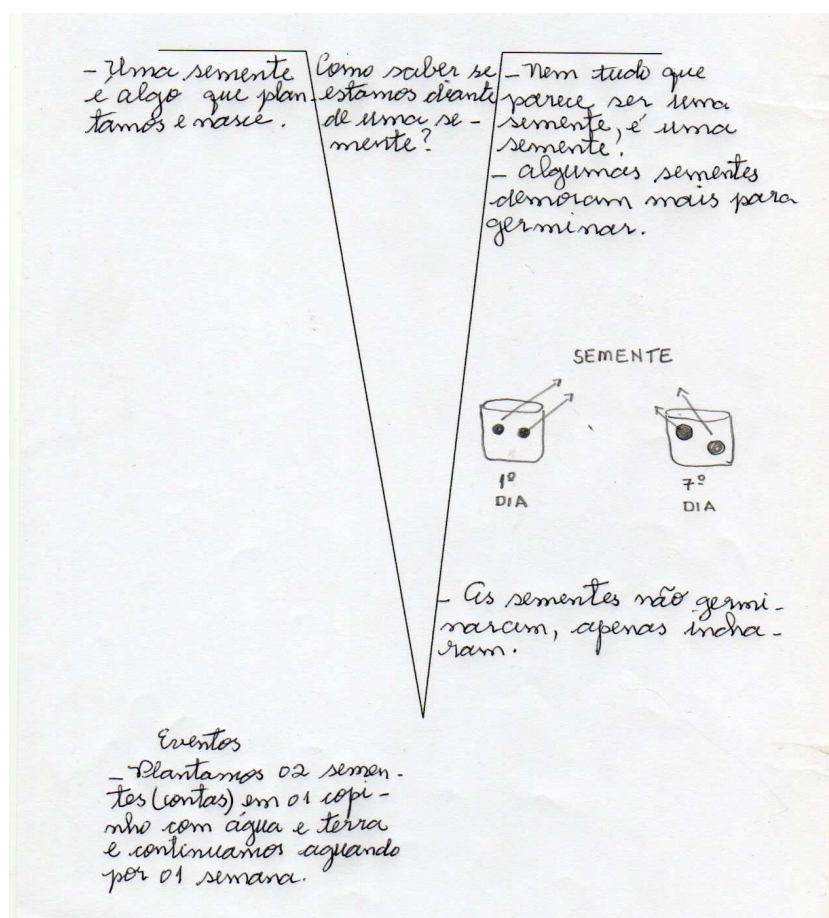 - Uma semente
é algo que plan-
tamos e nasce.
Como saber se
estamos deante
de uma se-
mente?
- Nem tudo que
parece ser uma
semente, é uma
semente.
- Algumas sementes
demoram mais para
germinar.
SEMENTE
1º
DIA
7º
DIA
- As sementes não germi-
naram, apenas incha-
ram.
Eventos
- Plantamos 02 semen-
tes (contas) em 01 copi-
nho com água e terra
e continuamos aguando
por 01 semana.